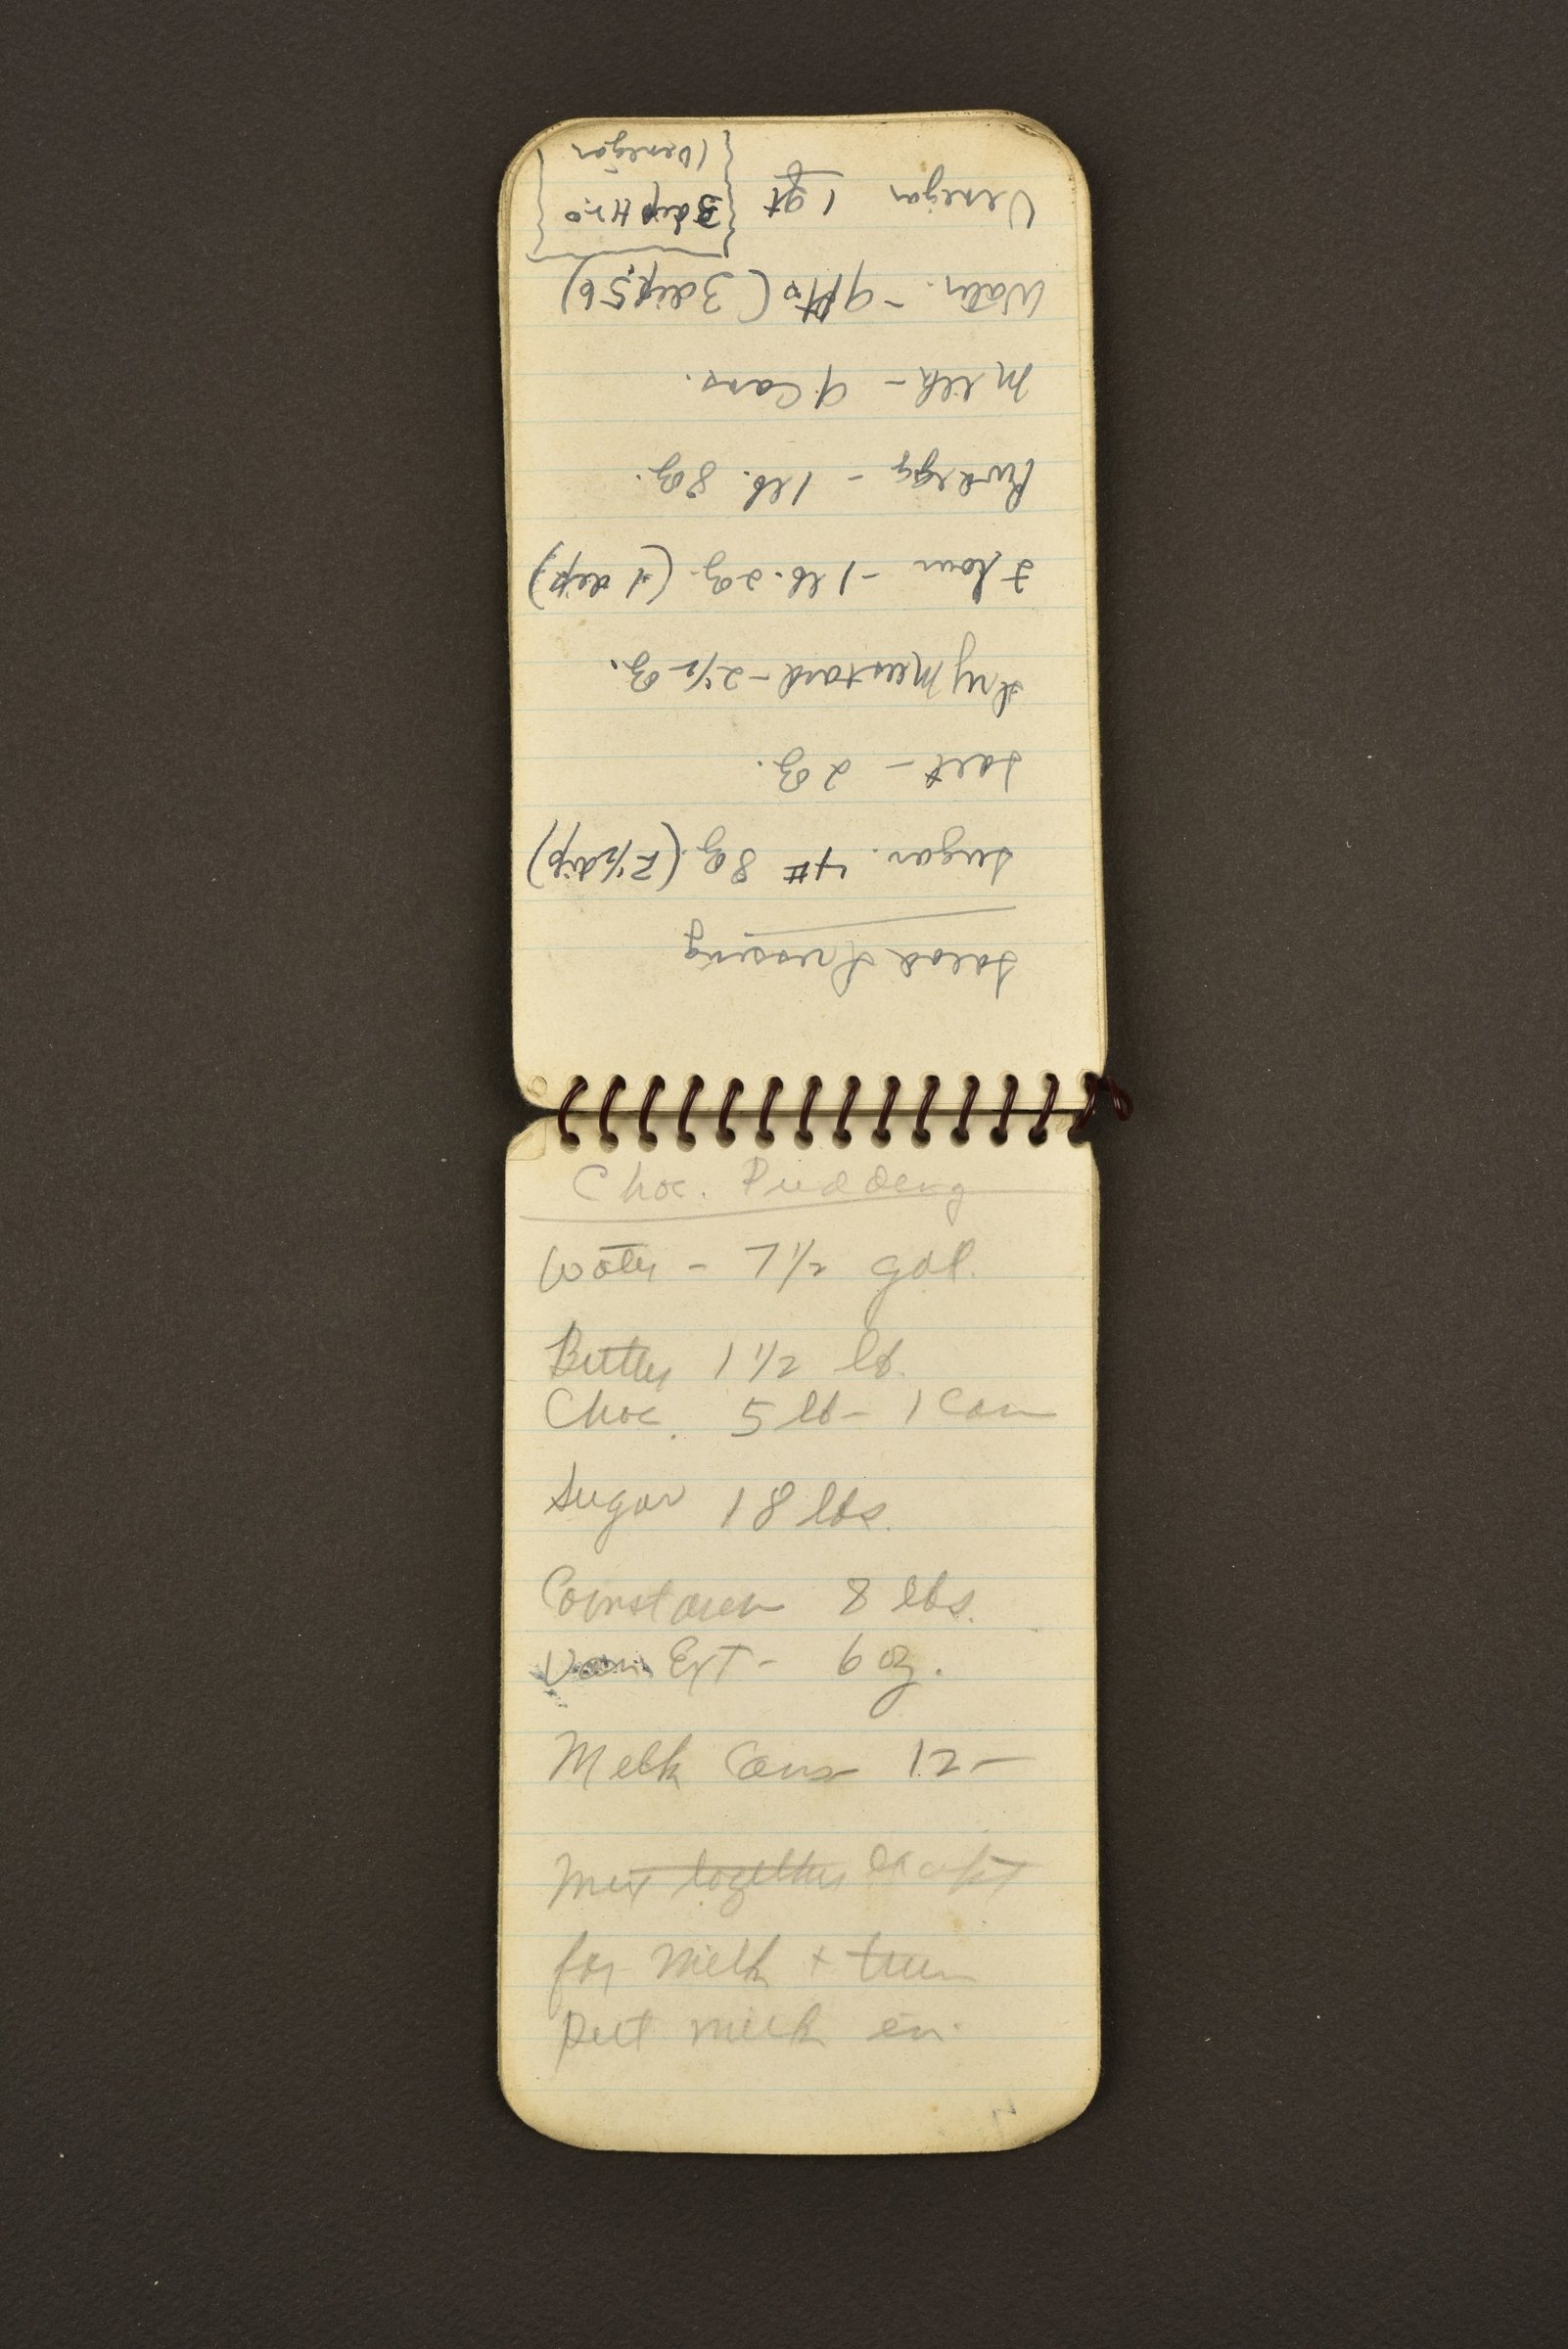 Salad Dressing
Sugar. 4# 8 oz. (2 1/2 dip)
Salt - 2 oz.
Dry Mustard - 2 1/2 oz.
Flour - 1 lb. 2 oz. (1 dip)
Pwd egg - 1 lb. 8 oz.
Milk - 9 Cans.
Water. - 9 pts (3 dip,
Venegar 1 qt
3 dip H2O
1 Venegar
Choc. Pudding
Water - 7 1/2 gal.
Butter 1 1/2 lb.
Choc. 5 lb - 1 Can
Sugar 18 lbs.
Cornstarch 8 lbs.
Van Ext - 6 oz.
Milk Cans 12 -
Mix together except
for milk + then
put milk in.